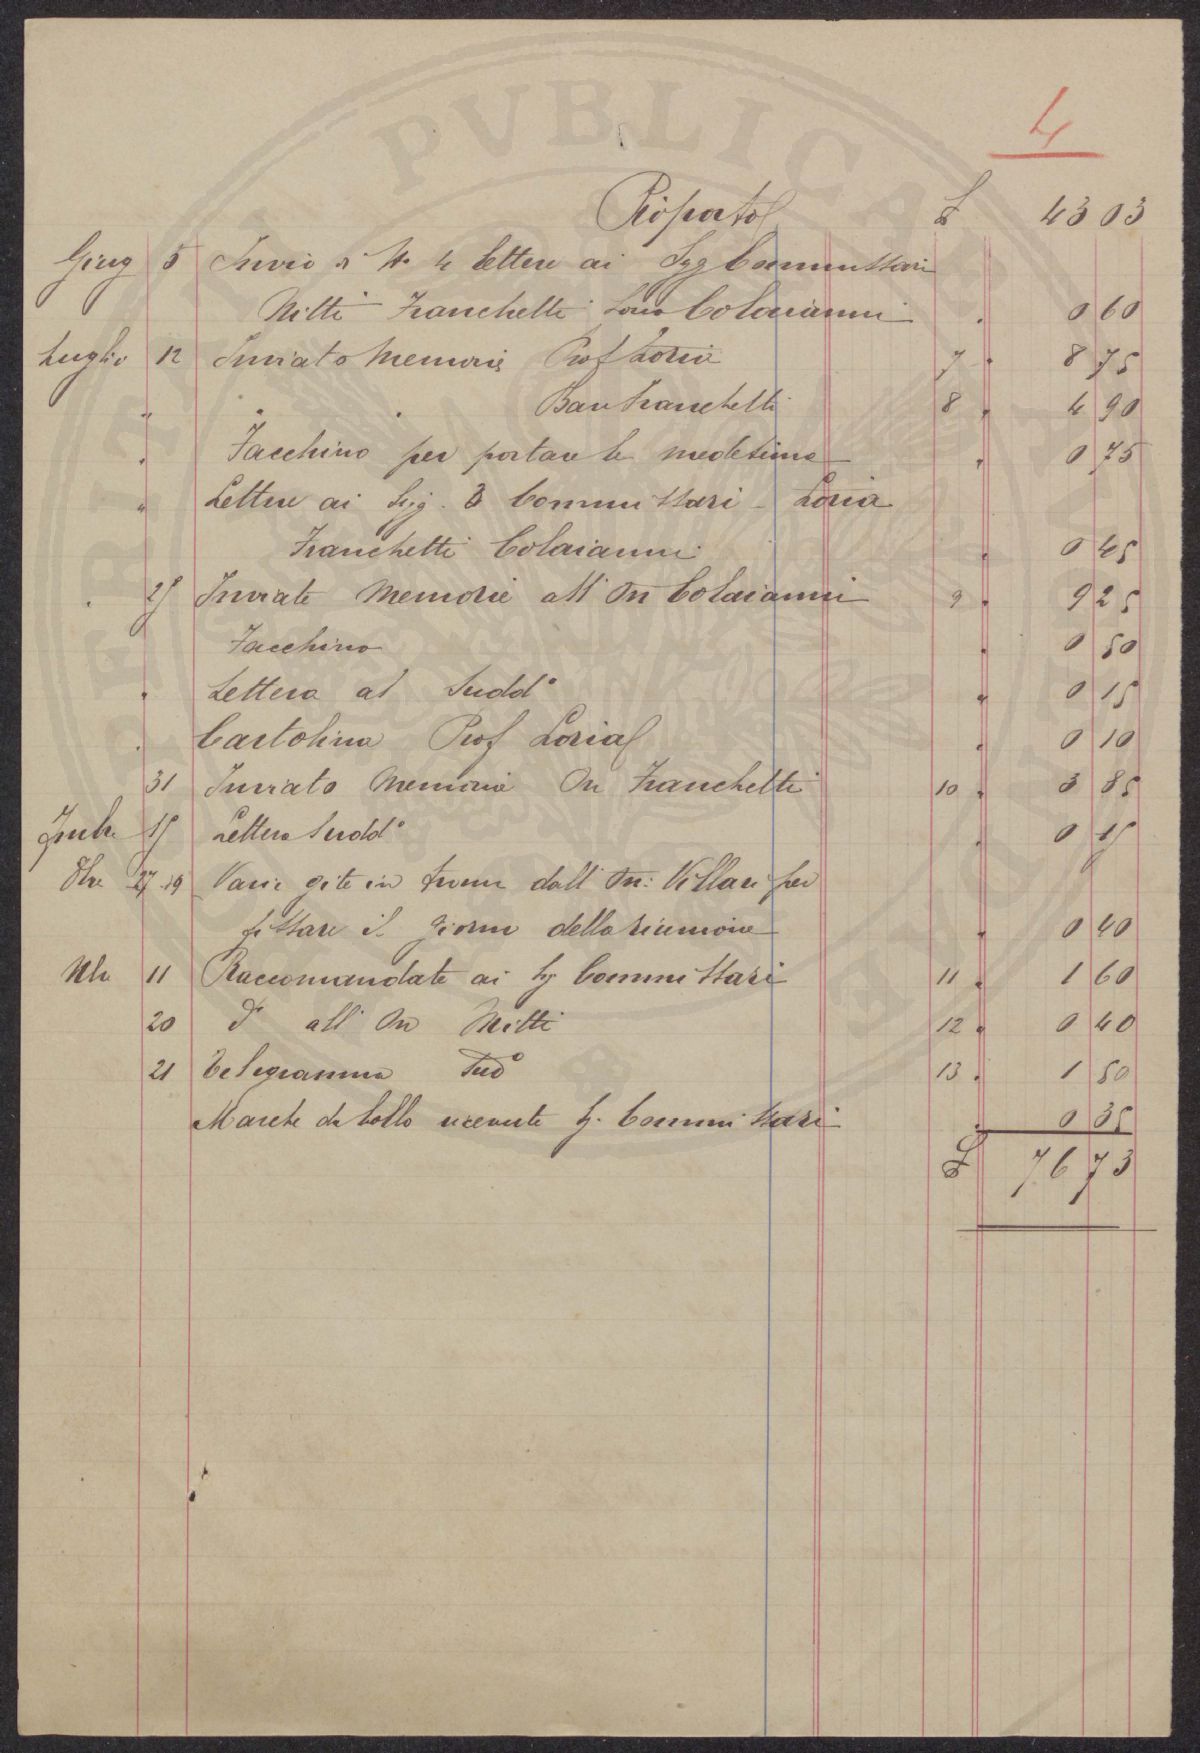 4
Riporto £ 43 03
Giug 5 Invio di No 4 lettere ai Sigg Commissari
Nitti Franchetti Loria Colaianni . 0 60
Luglio 12 Inviato Memorie Prof Loria 7 . 8 75
" " " Bar Franchetti 8 " 4 90
" Facchino per portare le medesime " 0 75
" Lettere ai Sig. 3 Commissari - Loria
Franchetti Colaianni . 0 45
" 25 Inviate Memorie all' On Colaianni 9 . 9 25
Facchino . 0 50
" Lettera al Sudd° " 0 15
" Cartolina Prof Loria . 0 10
31 Inviato Memorie On Franchetti 10 . 3 85
15 Lettera Sudd° . 0 15
27 29 Varie gite in dall' On: Villari per
fissare il giorno della riunione " 0 40
Nbre 11 Raccomandate ai Sig Commissari 11 . 1 60
20 d° all' On Nitti 12 . 0 40
21 Telegramma Sud° 13 . 1 50
Marche da bollo ricevute Sig. Commissari . 0 35
£ 76 73